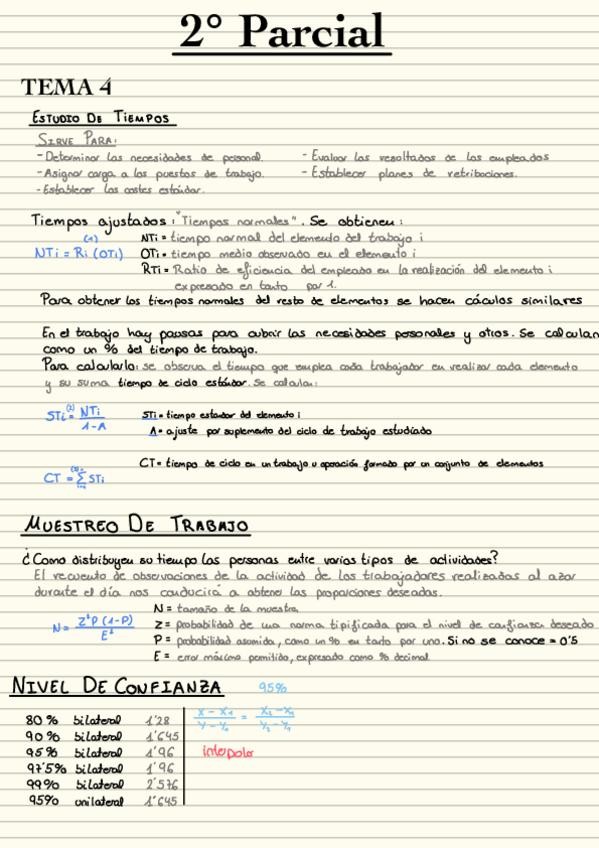 2° Parcial
TEMA 4
ESTUDIO DE TIEMPOS
SIRVE PARA:
- Determinar las necesidades de personal. - Evaluar los resultados de los empleados
- Asignar carga a los puestos de trabajo. - Establecer planes de retribuciones.
- Establecer los costes estándar.
Tiempos ajustados: "Tiempos normales". Se obtienen:
(1) NTi = tiempo normal del elemento del trabajo i
NTi = Ri (OTi) OTi = tiempo medio observado en el elemento i
RTi = Ratio de eficiencia del empleado en la realización del elemento i
expresado en tanto por 1.
Para obtener los tiempos normales del resto de elementos se hacen cáculos similares
En el trabajo hay pausas para cubrir las necesidades personales y otros. Se calculan
como un % del tiempo de trabajo.
Para calcularlo: se observa el tiempo que emplea cada trabajador en realizar cada elemento
y su suma tiempo de ciclo estándar. Se calcula:
STi (2)= NTi / 1-A STi = tiempo estandar del elemento i
A = ajuste por suplemento del ciclo de trabajo estudiado
CT = tiempo de ciclo en un trabajo u operación formado por un conjunto de elementos
CT = Σ STi
MUESTREO DE TRABAJO
¿Como distribuyen su tiempo las personas entre varios tipos de actividades?
El recuento de observaciones de la actividad de los trabajadores realizadas al azar
durante el día nos conducirá a obtener las proporciones deseadas.
N = tamaño de la muestra
N = Z²P (1-P) / E² Z = probabilidad de una norma tipificada para el nivel de confianza deseado
P = probabilidad asumida, como un % en tanto por uno. Si no se conoce = 0'5
E = error máximo pemitido, expresado como % decimal.
NIVEL DE CONFIANZA 95%
80% bilateral 1'28 X-X₁ / Y-Y₁ = X₂-X₁ / Y₂-Y₁
90% bilateral 1'645
95% bilateral 1'96 interpolar
97'5% bilateral 1'96
99% bilateral 2'576
95% unilateral 1'645